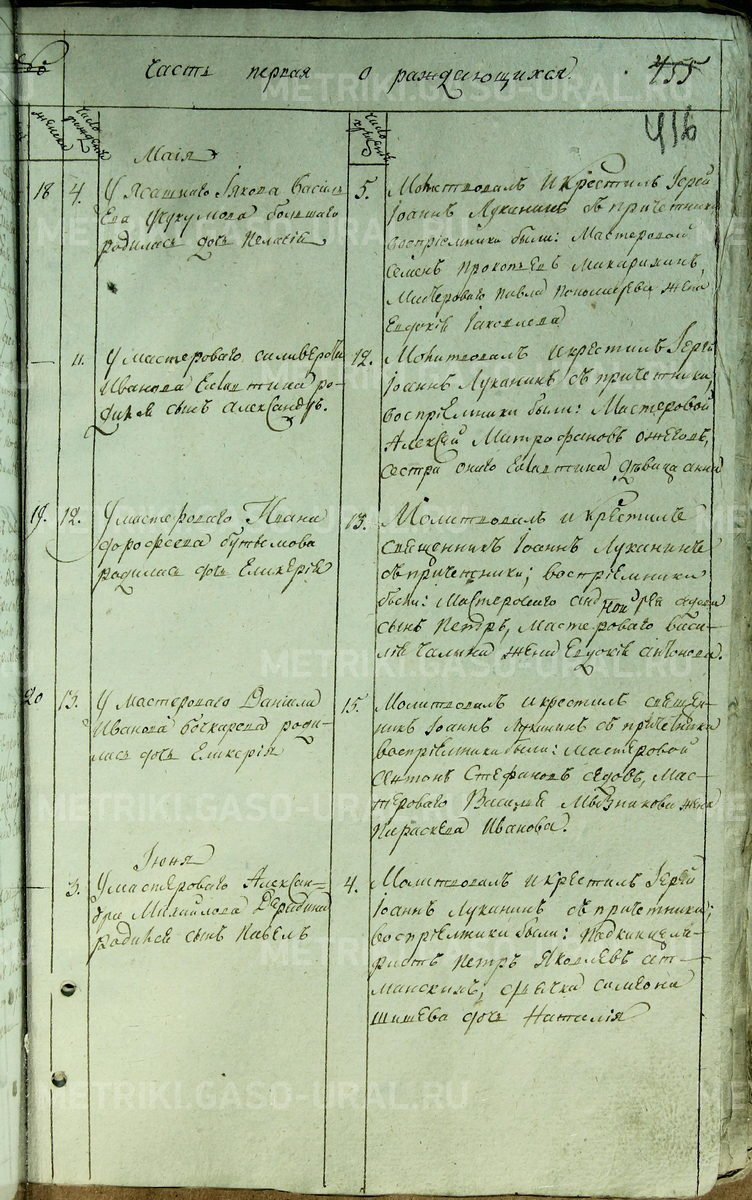 Часть первая о раждающихся.
455
416
женска
число рожденія
число крещенія
Маія
18 4. У Ясашнаго Іякова Василь
ева большаго
родилась дочь Пелагія
5. Молитвовалъ и крестилъ Іерей
Іоаннъ Луканинъ съ причетники
воспріемники были: Мастеровой
Семенъ Прокопьевъ Макаримнъ,
Мастероваго Павла Пономарева жена
Евдокія Іаковлева
— 11. У мастероваго
Иванова ро-
дился сынъ Александръ.
12. Молитвовалъ и крестилъ Іерей
Іоаннъ Луканинъ съ причетники,
воспріемники были: Мастеровой
Алексей Митрофановъ Ожеговъ,
сестра онаго девица Анна
19. 12. У мастероваго Ивана
Дорофеева
родилась дочь Гликерія
13. Молитвовалъ и крестилъ
священникъ Іоаннъ Луканинъ
съ причетники; воспріемники
были: Мастероваго
сынъ Петръ, Мастероваго Васи-
лія жена Евдокія Антонова.
20 13. У Мастероваго Даніила
Иванова Бочкарева роди-
лась дочь Гликерія
15. Молитвовалъ и крестилъ священ-
никъ Іоаннъ Луканинъ съ причетники
воспріемники были: Мастеровой
Антонъ Стефановъ Седовъ, Мас-
тероваго Василія жена
Параскева Иванова.
Іюня
— 3. У мастероваго Алексан-
дра Михайлова
родился сынъ Павелъ
4. Молитвовалъ и крестилъ Іерей
Іоаннъ Луканинъ съ причетники;
воспріемники были: Подканцеля-
ристъ Петръ Яковлевъ Ат-
манскихъ, дьячка Симеона
Шишева дочь Наталія
METRIKI.GASO-URAL.RU